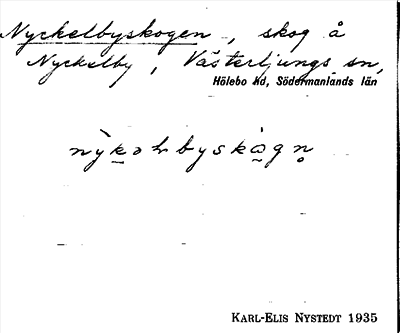 Nyckelbyskogen, skog å
Nyckelby, Västerljungs sn,
Hölebo hd, Södermanlands län
nỳkəlbyskɷ̀gn̥
KARL-ELIS NYSTEDT 1935